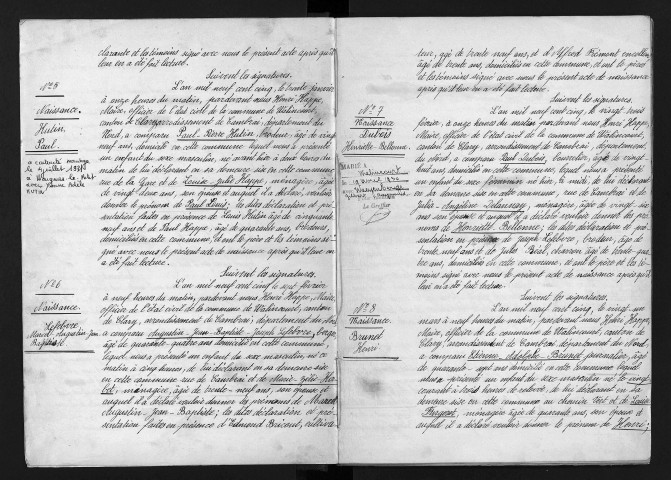 clarante et les témoins signé avec nous le présent acte après qu'il
leur en a été fait lecture.
Suivent les signatures.
N° 5
Naissance.
Hutin
Paul.
L'an mil neuf cent cinq, le trente janvier
à onze heures du matin, pardevant nous Henri Happe,
Maire, officier de l'état civil de la commune de Walincourt,
canton de Clary, arrondissement de Cambrai, département du
Nord, a comparu Paul Hutin, brodeur, âgé de vingt
neuf ans, domicilié en cette commune, lequel nous a présenté
un enfant du sexe masculin, né avant hier à deux heures du
matin de lui déclarant en sa demeure sise en cette commune
rue de la Gare et de Louise Julie Happe, ménagère, âgée
de vingt deux ans, son épouse et auquel il a déclaré vouloir
donner le prénom de Paul; les dites déclaration et pré-
sentation faites en présence de Hutin âgé de cinquante
neuf ans et de Paul Happe, âgé de quarante ans, brodeurs,
domiciliés en cette commune, et ont le père et les témoins si-
gné avec nous le présent acte de naissance après qu'il leur
en a été fait lecture.
Suivent les signatures.
N° 6
Naissance.
Lefebvre
Marcel Augustin Jean
Baptiste
L'an mil neuf cent cinq le sept février
à neuf heures du matin, pardevant nous Henri Happe, Maire,
officier de l'état civil de la commune de Walincourt, canton
de Clary, arrondissement de Cambrai, département du Nord
a comparu Augustin Jean-Baptiste Joseph Lefebvre,
âgé de quarante quatre ans domicilié en cette commune
lequel nous a présenté un enfant du sexe masculin, né ce
matin à cinq heures, de lui déclarant en sa demeure sise
en cette commune rue de Cambrai et de Marie
ménagère, âgée de trente-neuf ans, son épouse et
auquel il a déclaré vouloir donner les prénoms de Marcel
Augustin Jean-Baptiste; les dites déclaration et pré-
sentation faites en présence d'Edmond Bricout,
teur, âgé de trente neuf ans, et d'Alfred Frémont
âgé de trente ans, domiciliés en cette commune, et ont le père
et les témoins signé avec nous le présent acte de naissance
après qu'il leur en a été fait lecture.
Suivent les signatures.
N° 7
Naissance
Dubois
Henriette Bellonne.
L'an mil neuf cent cinq, le vingt trois
février, à onze heures du matin, pardevant nous Henri Happe,
Maire, officier de l'état civil de la commune de Walincourt,
canton de Clary, arrondissement de Cambrai, département
du Nord, a comparu Paul Dubois, âgé de vingt
ans, domicilié en cette commune, lequel nous a présenté
un enfant du sexe féminin né hier, à midi, de lui déclarant
en sa demeure sise en cette commune, rue de Cambrai et de
Julia Angéline Delannoy, ménagère, âgée de vingt
ans, son épouse et auquel il a déclaré vouloir donner les pré-
noms de Henriette Bellonne; les dites déclaration et pré-
sentation en présence de Joseph Lefebvre, brodeur, âgé de
trente neuf ans et de Jules charron, âgé de
ans, domiciliés en cette commune, et ont le père et les té-
moins signé avec nous le présent acte de naissance après qu'il
leur en a été fait lecture.
Suivent les signatures.
N° 8
Naissance.
Brunel
Henri.
L'an mil neuf cent cinq, le vingt un
mars à neuf heures du matin, pardevant nous Henri Happe,
Maire, officier de la commune de Walincourt, canton de
Clary, arrondissement de Cambrai département du Nord,
a comparu Adolphe Brunel journalier, âgé
de quarante ans domicilié en cette commune lequel
nous a présenté un enfant du sexe masculin né le vingt
courant à trois heures et de lui déclarant en sa
demeure sise en cette commune au chemin Vert et de Louise
ménagère âgée de quarante ans, son épouse et
auquel il a déclaré vouloir donner le prénom de Henri;